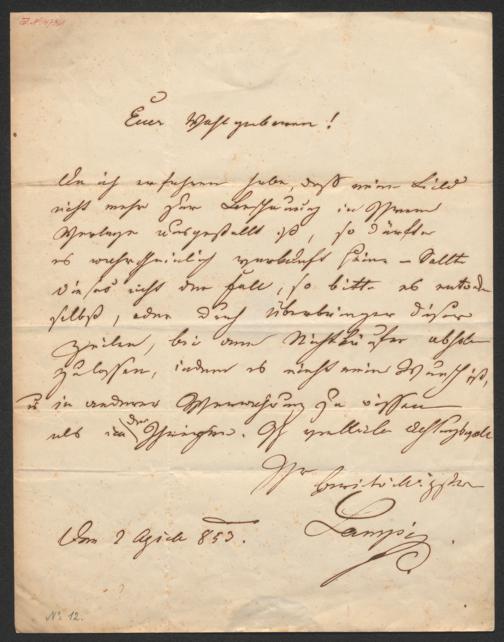 Euer Wohlgeboren!
Da ich erfahren habe, daß mein Bild
nicht mehr zur Beschauung in Ihrem
Verlage ausgestellt ist, so dürfte
es wahrscheinlich verkauft seine – Sollte
dieses nicht der Fall, so bitte es entweder
selbst, oder durch Überbringer dieser
Zeilen, bei dem abholen
zu lassen, indem es nicht mein Wunsch ist,
in anderer Verwahrung zu wissen
als in der Ihrigen. Ich
Ihr bereitwilligster
Lampi
Den 2 April 853.
No 12.